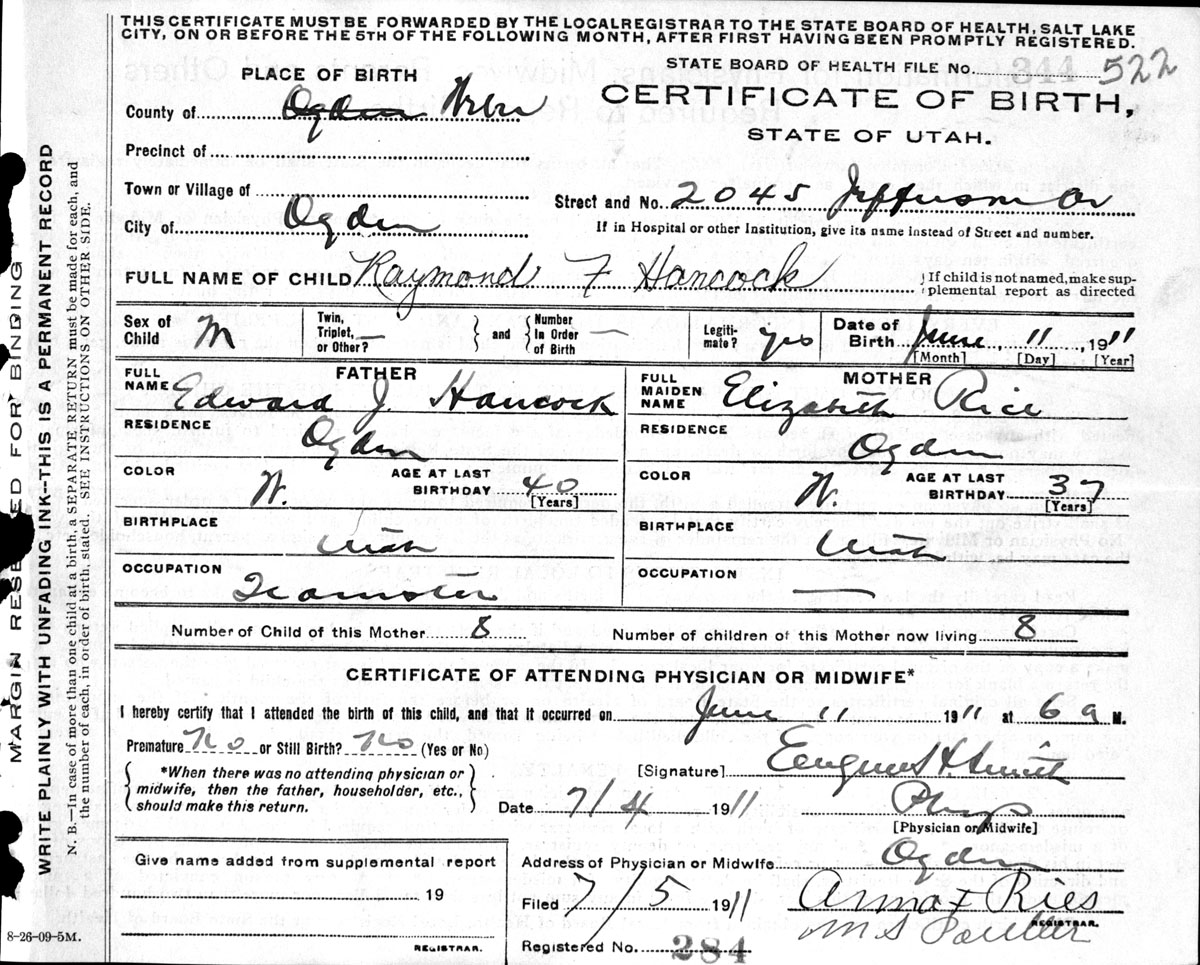 THIS CERTIFICATE MUST BE FORWARDED BY THE LOCAL REGISTRAR TO THE STATE BOARD OF HEALTH, SALT LAKE
CITY, ON OR BEFORE THE 5TH OF THE FOLLOWING MONTH, AFTER FIRST HAVING BEEN PROMPTLY REGISTERED.
PLACE OF BIRTH
STATE BOARD OF HEALTH FILE No. 344 522
County of Ogden Weber
CERTIFICATE OF BIRTH,
STATE OF UTAH.
Precinct of
Town or Village of
Street and No. 2045 Jefferson Av
City of Ogden
If in Hospital or other Institution, give its name instead of Street and number.
FULL NAME OF CHILD Raymond F Hancock
If child is not named, make sup-
plemental report as directed
Sex of Child M
Twin, Triplet, or Other?
and Number In Order of Birth
Legiti-mate? yes
Date of Birth June 11 1911
[Month] [Day] [Year]
FATHER
FULL NAME Edward J. Hancock
RESIDENCE Ogden
COLOR W. AGE AT LAST BIRTHDAY 40 [Years]
BIRTHPLACE Utah
OCCUPATION Teamster
MOTHER
FULL MAIDEN NAME Elizabeth Rice
RESIDENCE Ogden
COLOR W. AGE AT LAST BIRTHDAY 37 [Years]
BIRTHPLACE Utah
OCCUPATION
Number of Child of this Mother 8 Number of children of this Mother now living 8
CERTIFICATE OF ATTENDING PHYSICIAN OR MIDWIFE*
I hereby certify that I attended the birth of this child, and that it occurred on June 11 1911 at 6 a M.
Premature No or Still Birth? No (Yes or No)
*When there was no attending physician or
midwife, then the father, householder, etc.,
should make this return.
[Signature] H Smith
Date 7/4 1911 Phys
[Physician or Midwife]
Give name added from supplemental report
19
REGISTRAR.
Address of Physician or Midwife Ogden
Filed 7/5 1911 Anna F Ries
REGISTRAR.
Registered No. 284
8-26-09-5M.
MARGIN RESERVED FOR BINDING
WRITE PLAINLY WITH UNFADING INK--THIS IS A PERMANENT RECORD
N. B.—In case of more than one child at a birth, a SEPARATE RETURN must be made for each, and
the number of each, in order of birth, stated. SEE INSTRUCTIONS ON OTHER SIDE.